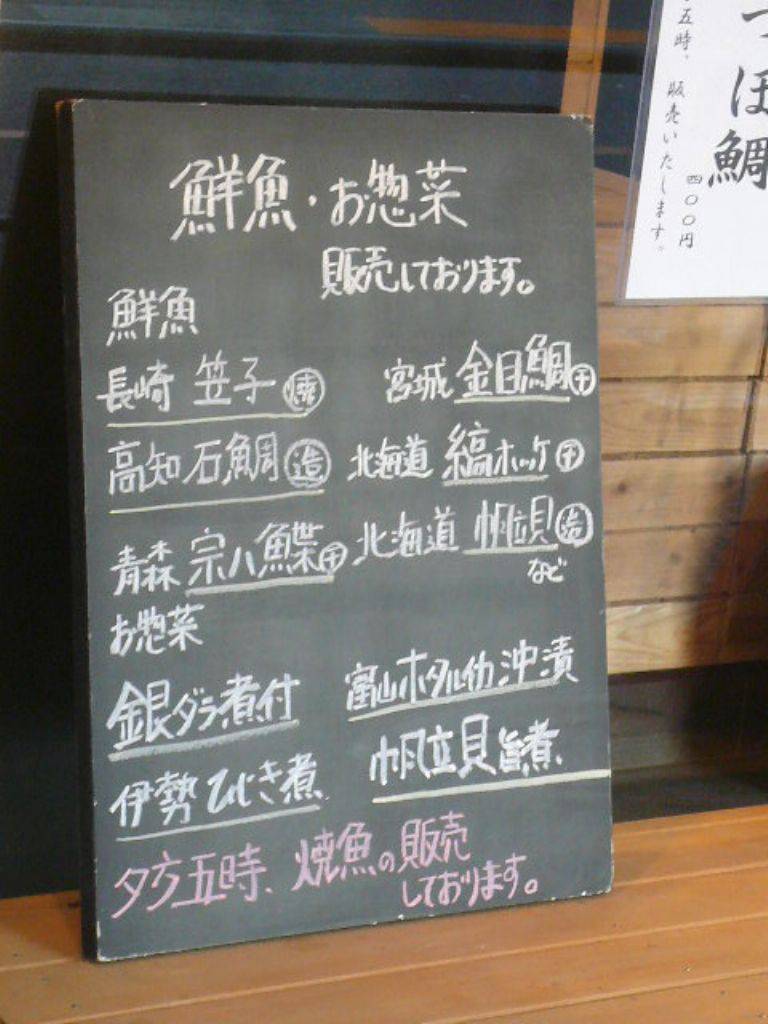 鮮魚・お惣菜
販売しております。
鮮魚
長崎 笠子 焼
宮城 金目鯛 干
高知 石鯛 造
北海道 縞ホッケ 干
青森 宗八鰈 干
北海道 帆立貝 造
など
お惣菜
銀ダラ煮付
富山ホタルイカ沖漬
伊勢ひじき煮
帆立貝旨煮
夕方五時、焼魚の販売
しております。
つぼ鯛
四〇〇円
五時、販売いたします。